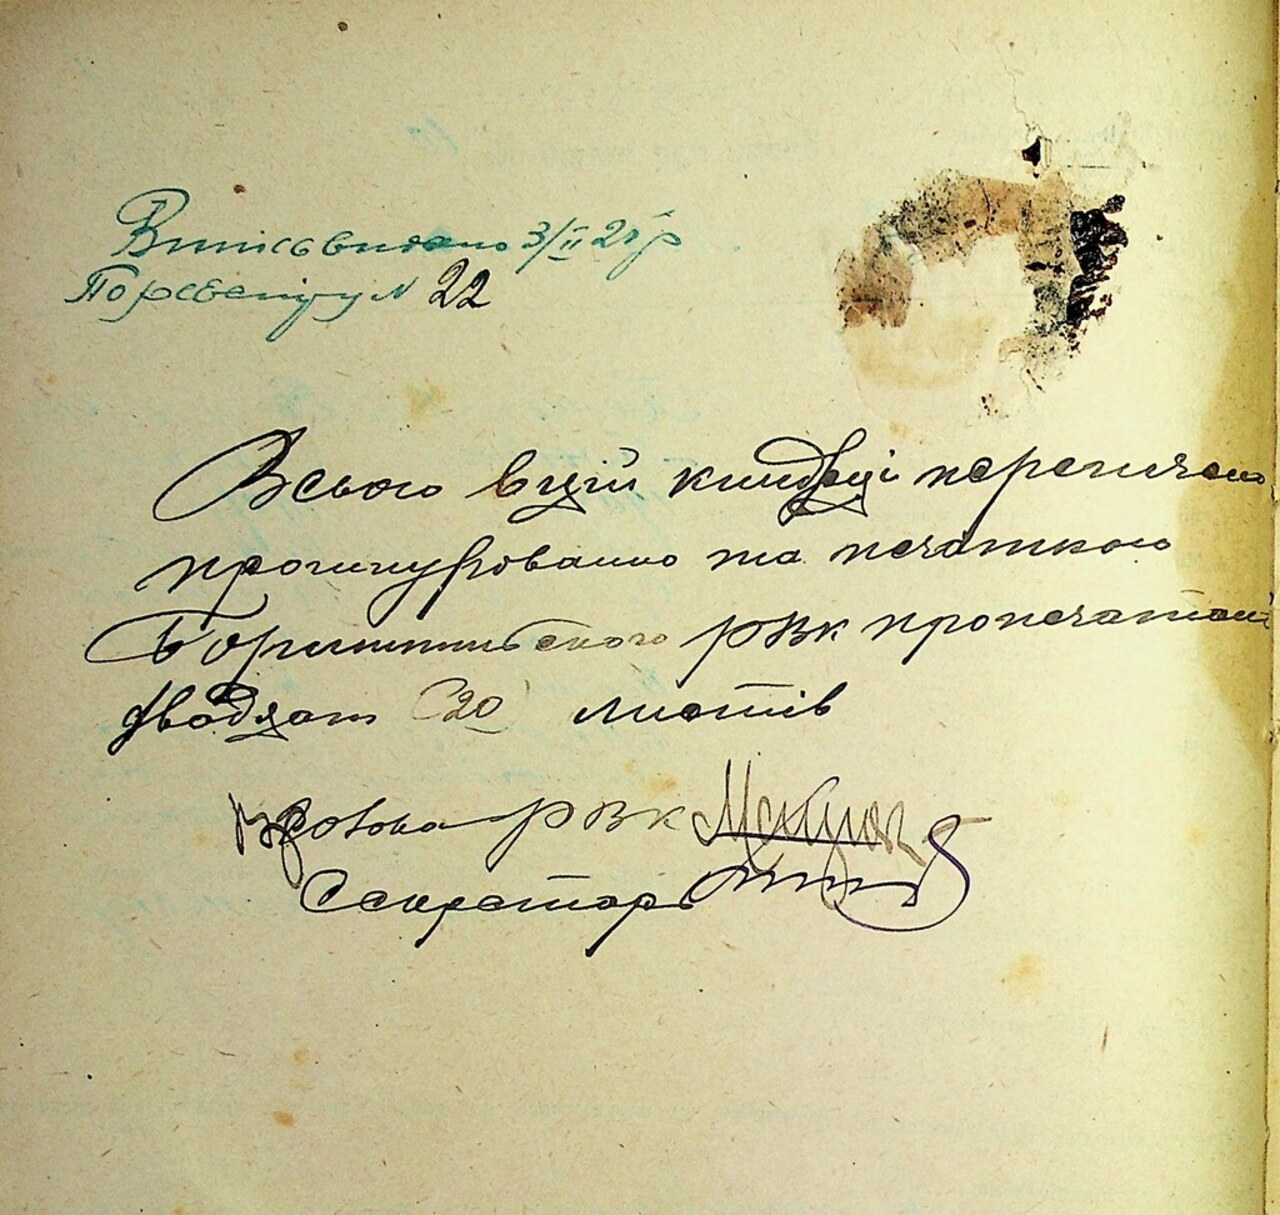 Випісь видано 3/II 25 р
По реєстру N 22
Всього в цій книзі перенумеровано
прошнуровано та печаткою
Бориспільского РВК пропечатано
двадцят (20) листів
Голова РВК
Секретарь